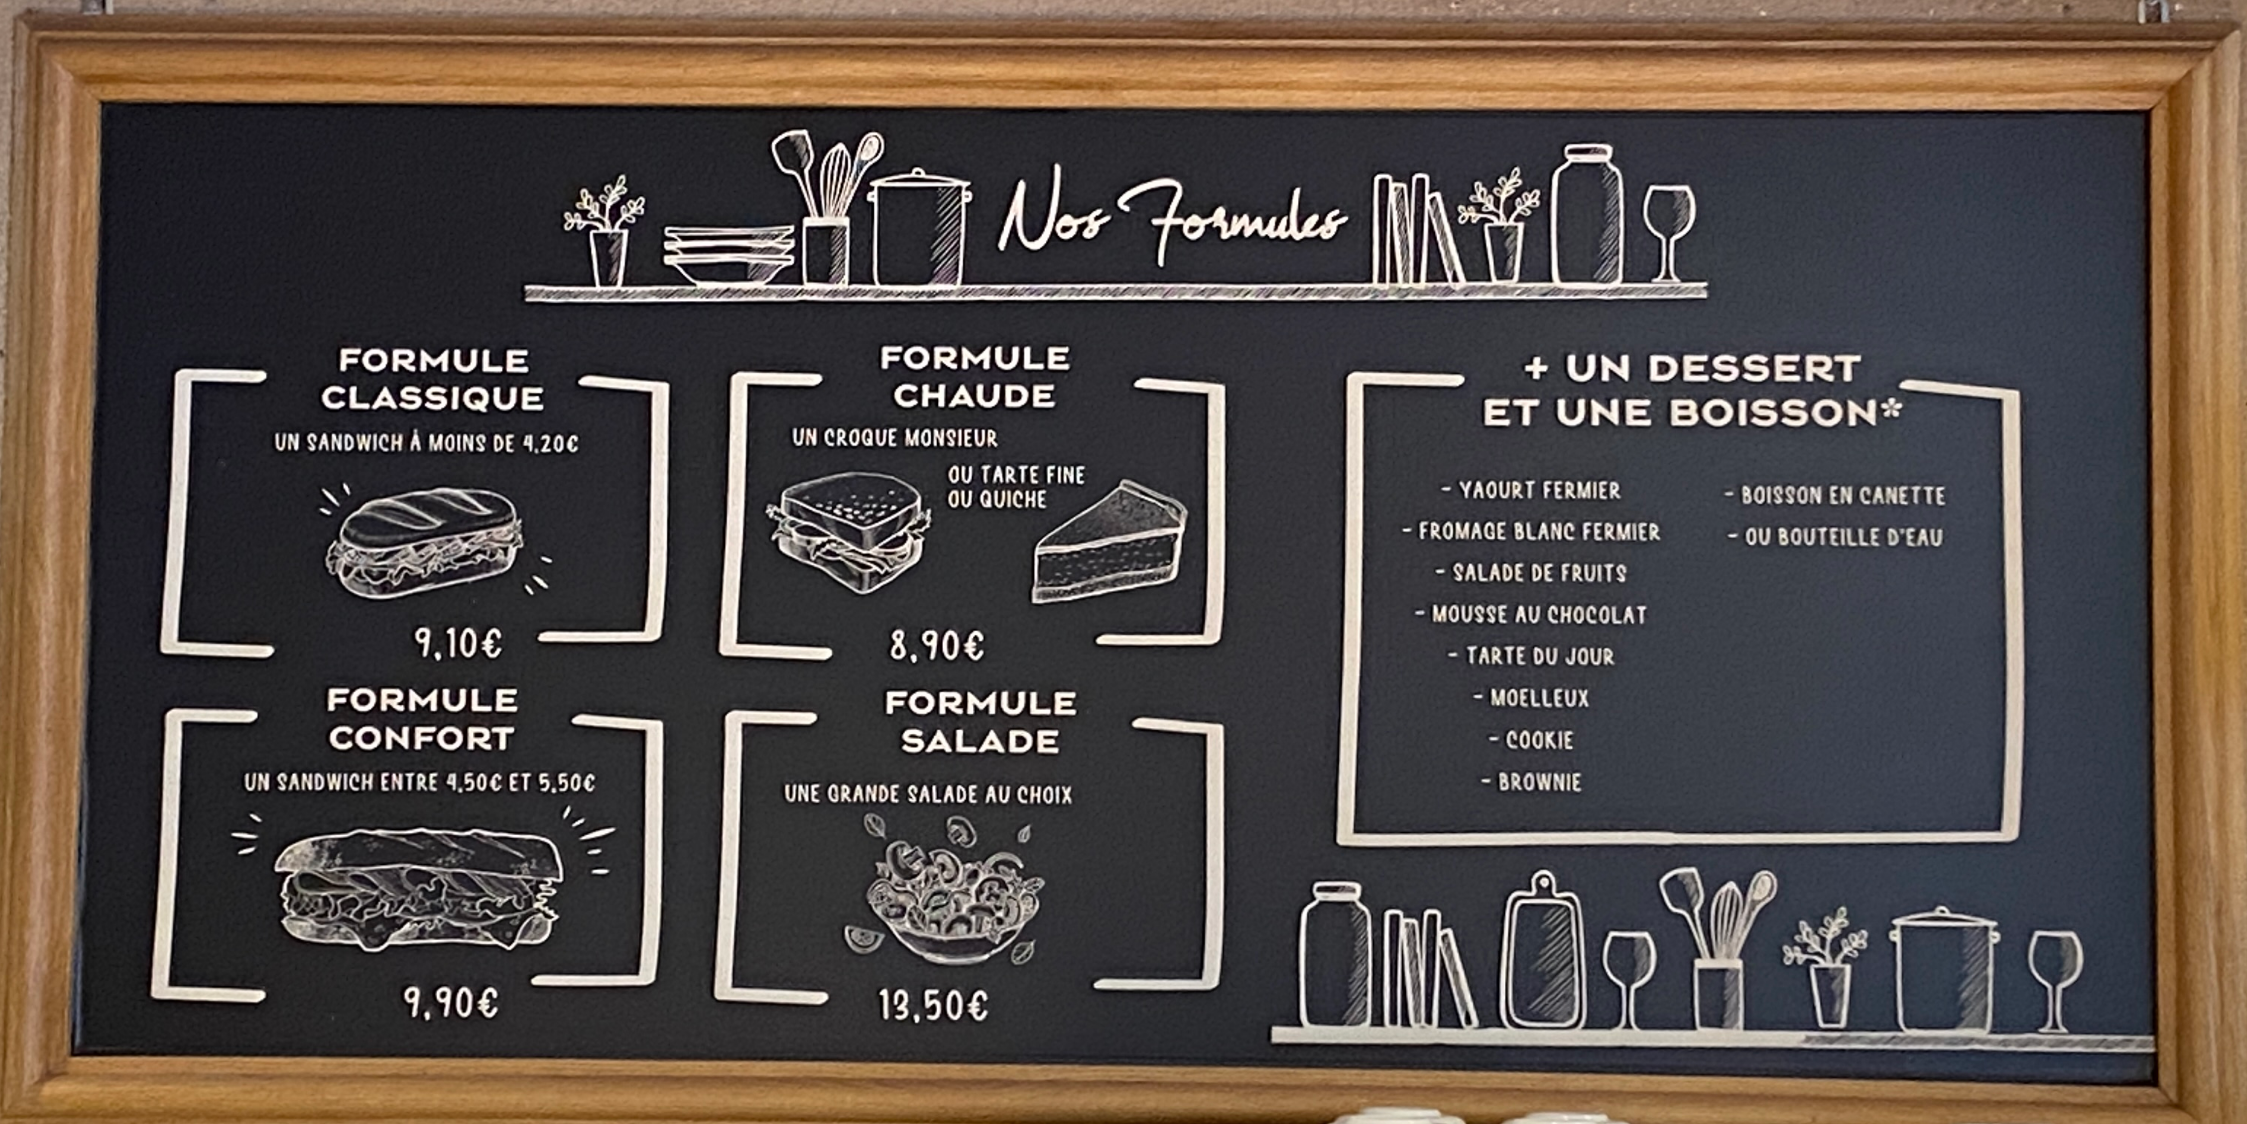 Nos Formules
FORMULE
CLASSIQUE
UN SANDWICH À MOINS DE 4,20€
9,10€
FORMULE
CHAUDE
UN CROQUE MONSIEUR
OU TARTE FINE
OU QUICHE
8,90€
FORMULE
CONFORT
UN SANDWICH ENTRE 4,50€ ET 5,50€
9,90€
FORMULE
SALADE
UNE GRANDE SALADE AU CHOIX
13,50€
+ UN DESSERT
ET UNE BOISSON*
- YAOURT FERMIER
- FROMAGE BLANC FERMIER
- SALADE DE FRUITS
- MOUSSE AU CHOCOLAT
- TARTE DU JOUR
- MOELLEUX
- COOKIE
- BROWNIE
- BOISSON EN CANETTE
- OU BOUTEILLE D'EAU